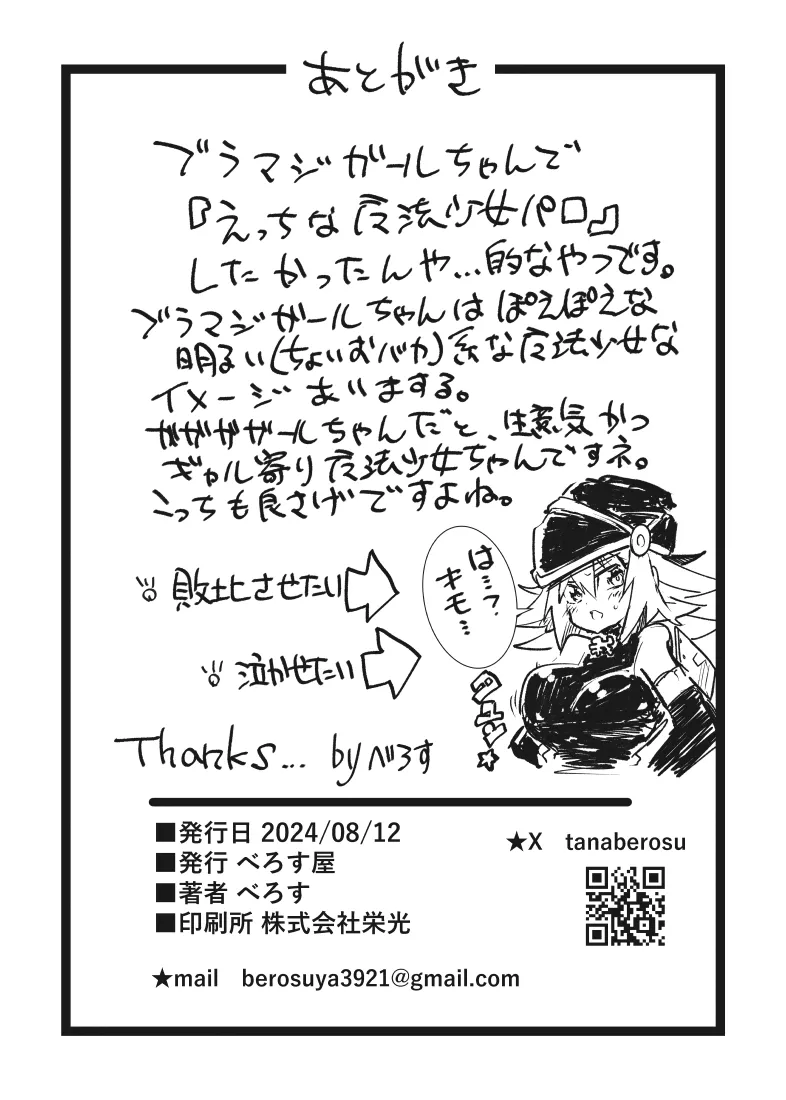 あとがき
ブラマジガールちゃんで
『えっちな魔法少女パロ』
したかったんや…的なやつです。
ブラマジガールちゃんはぽえぽえな
明るい(ちょいおバカ)系な魔法少女な
イメージあいまする。
ガガガガールちゃんだと、生意気かつ
ギャル寄り魔法少女ちゃんですネ。
こっちも良さげですよね。
敗北させたい
泣かせたい
は…?
キモ…
Thanks... byべろす
■発行日 2024/08/12
■発行 べろす屋
■著者 べろす
■印刷所 株式会社栄光
★X tanaberosu
★mail berosuya3921@gmail.com